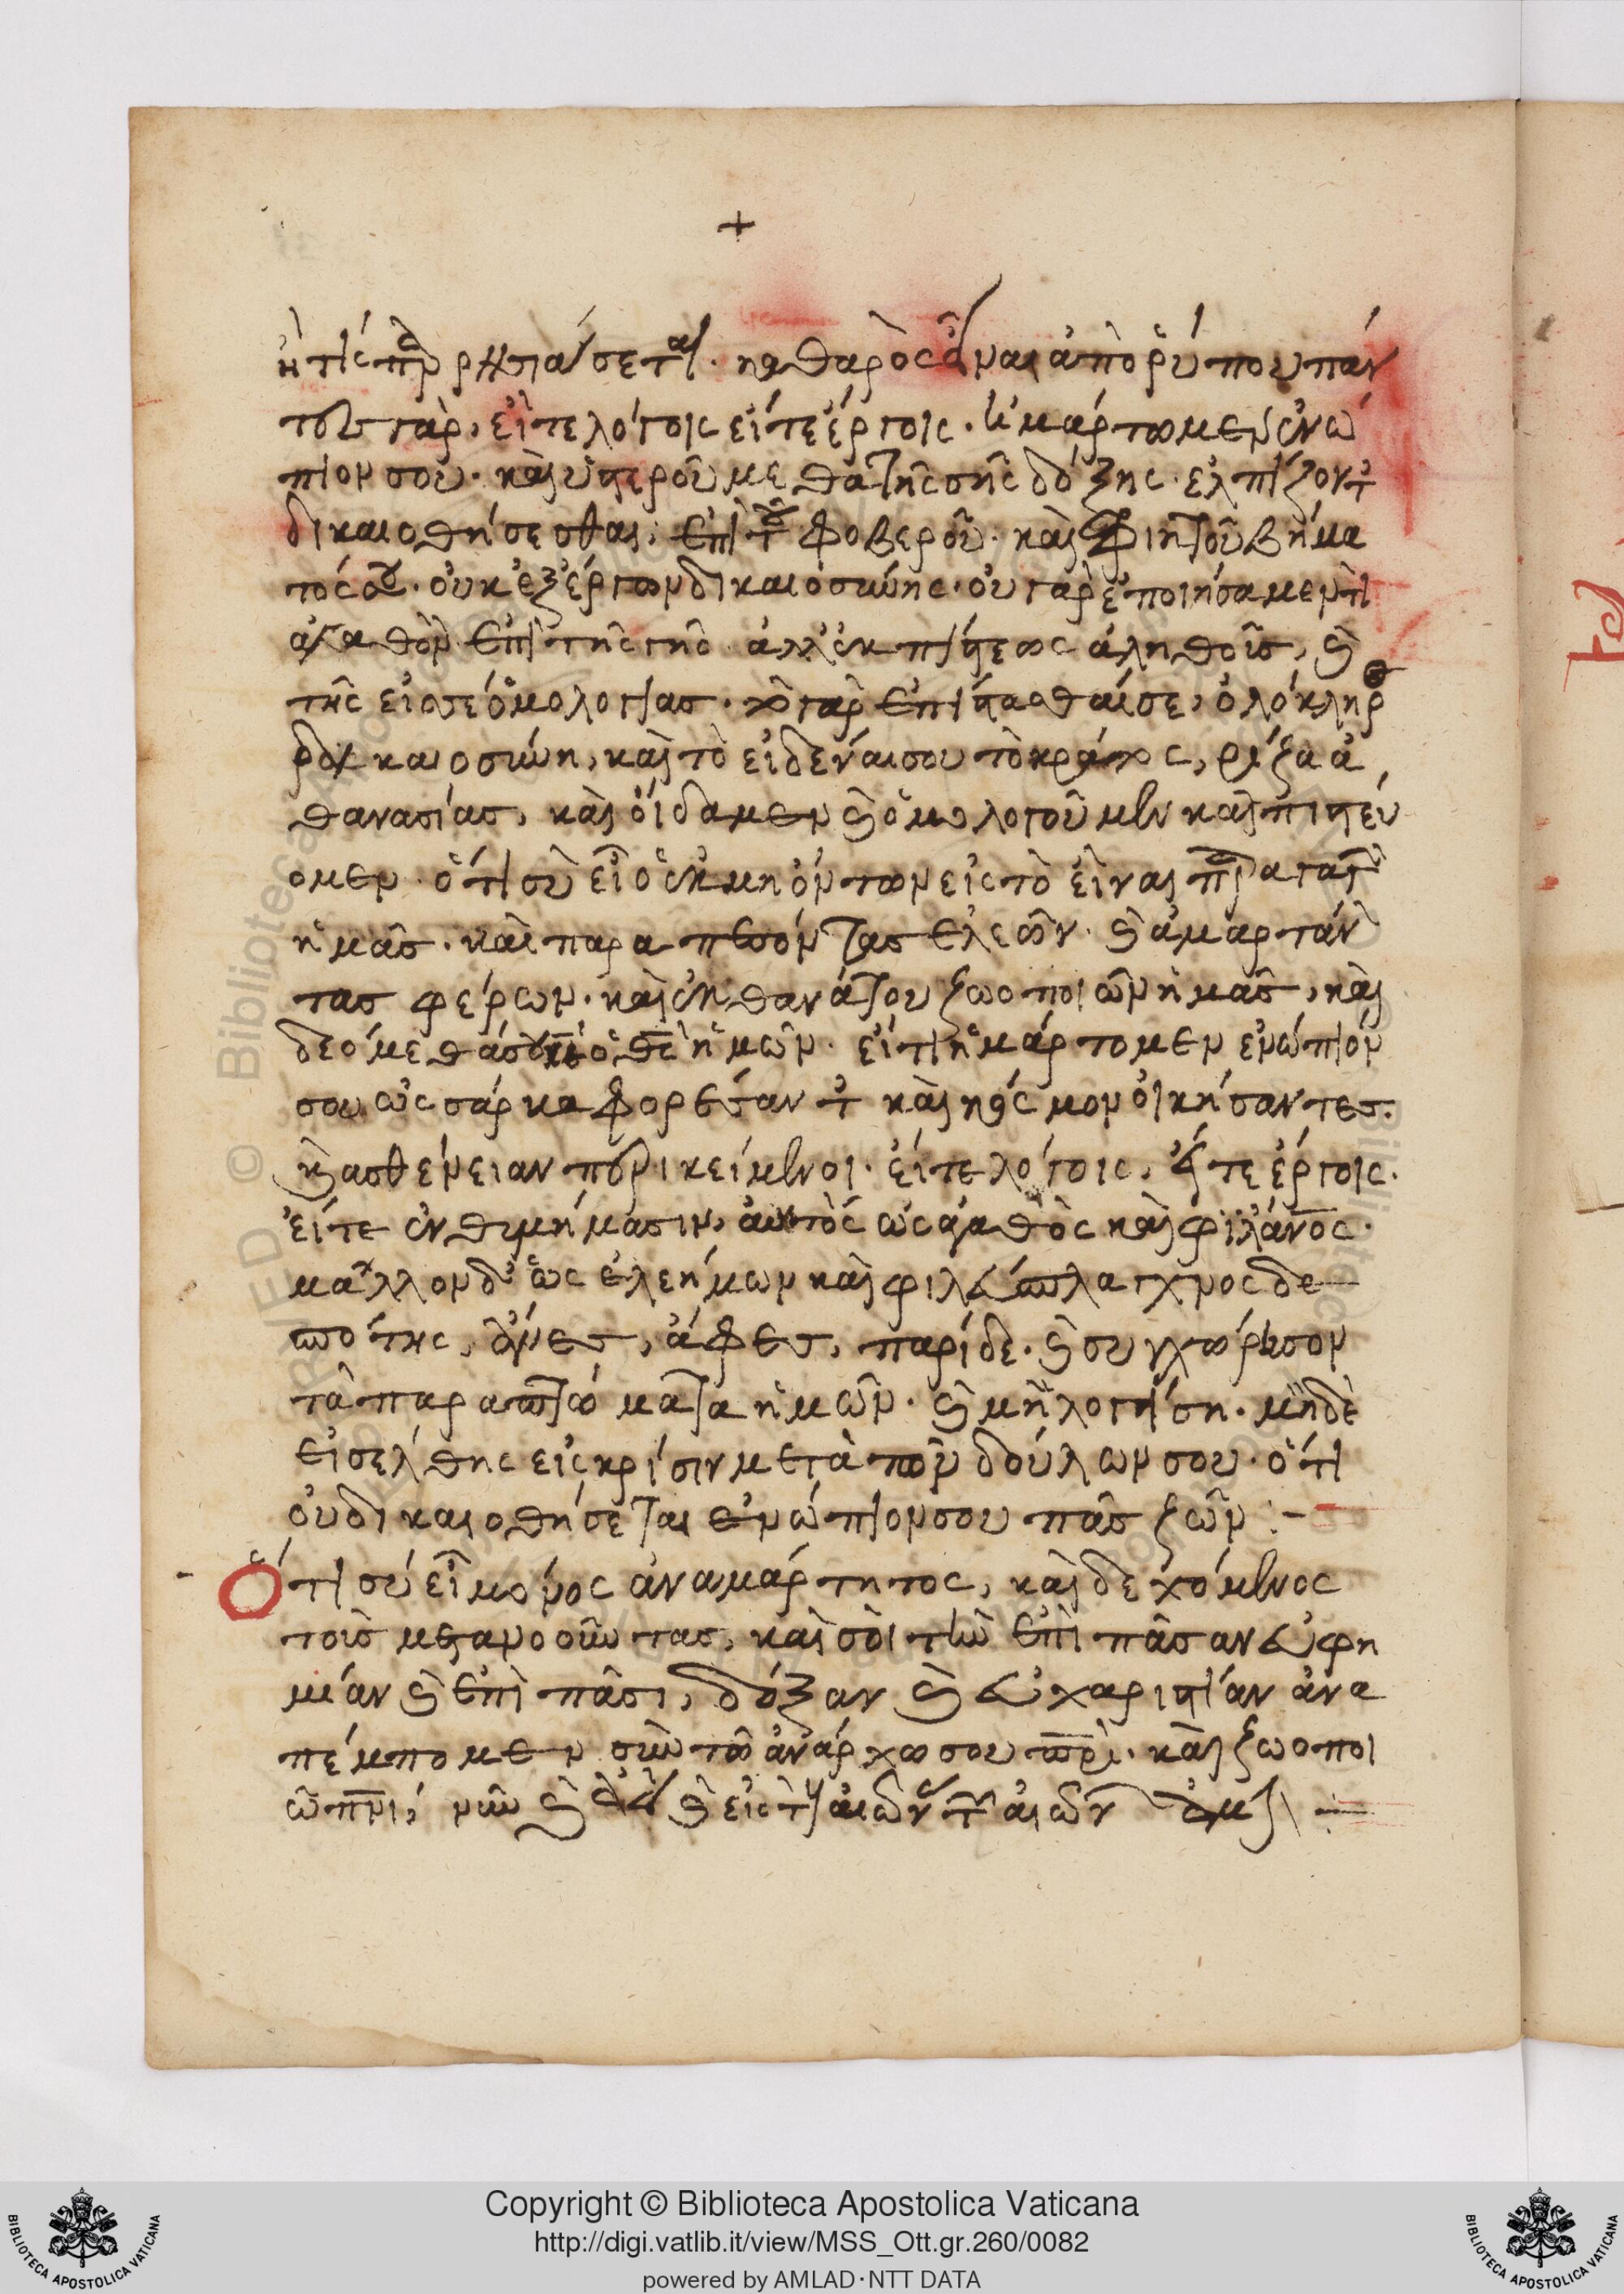 +
ἢ τίς π̅ρ̅ρησιάσεται. καθαρὸς εἶναι ἀπὸ ῥύπου πάν
τες γὰρ, εἴτε λόγοις εἴτε ἔργοις. ἡμάρτωμεν ἐνώ
πιον σου. καὶ ὑστερούμεθα τῆς σῆς δόξης. ἐλπίζοντ
δικαιοθήσεσθαι. ἐπὶ τοῦ φοβεροῦ. καὶ φρικτοῦ βήμα
τός σου. οὐκ ἐξ ἔργων δικαιοσύνης. οὐ γὰρ ἐποιήσαμεν τὶ
ἀγαθὸν ἐπὶ τῆς γῆς ἀλλ' ἐκ πίστεως ἀληθοῖς, κ
τῆς εἰς σὲ ὁμολογίας. τὸ γὰρ ἐπίστασθαί σε, ὁλόκληρο
δικαιοσύνη, καὶ τὸ εἰδέναι σου τὸ κράτος, ρίζα ἀ
θανασίας, καὶ οἴδαμεν κ ὁμολογοῦμεν καὶ πιστεύ
ομεν. ὅτι σὺ εἶ ὁ ἐκ μὴ όντων εἰς τὸ εἶναι παραγαγὼ
ἡμᾶς. καὶ παραπεσόντας ἐλεῶν. κ ἁμαρτάν
τας φέρων. καὶ ἐκ θανάτου ζωοποιῶν ἡμᾶς, καὶ
δεόμεθά σου κ̅ε̅ ὁ θ̅ς̅ ἡμῶν. εἴ τι ἡμάρτομεν ἐνώπιόν
σου ὡς σάρκα φορέσαντ καὶ κόσμον οἰκήσαντες.
κ ασθένειαν περικείμενοι. εἴτε λόγοις, εἴτε ἔργοις.
εἴτε ἐνθυμήμασιν, αὐτὸς ὡς ἀγαθὸς καὶ φιλάν̅ο̅ς.
μᾶλλον δὲ ὡς ἐλεήμων καὶ φιλεύσπλαγχνος δε
σπότης, ἄνες, ἄφες, παρίδε. κ συγχώρησον
τὰ παραπτώματα ἡμῶν. κ μὴ λογήση. μηδὲ
εἰσέλθης εἰς κρίσιν μετὰ τῶν δούλων σου. ὅτι
οὐ δικαιοθήσεται ἐνώπιον σου πᾶς ζῶν :-
Ὅτι σὺ εἶ μόνος ἀναμάρτητος, καὶ δεχόμενος
τοὶς μετανοοῦντας, καὶ σοὶ τὴν ἐπὶ πᾶσαν εὐφη
μίαν κ ἐπὶ πᾶσι, δόξαν κ εὐχαριστίαν ἀνα
πέμπομεν σὺν τῶ ἀνάρχω σου π̅ρ̅ι̅. καὶ ζωοποι
ῶ π̅ν̅ι, νῦν κ ἀεὶ κ εἰς τοὺς αἰῶν τῶν αἰών ἀμὴν :-
Copyright © Biblioteca Apostolica Vaticana
http://digi.vatlib.it/view/MSS_Ott.gr.260/0082
powered by AMLAD·NTT DATA